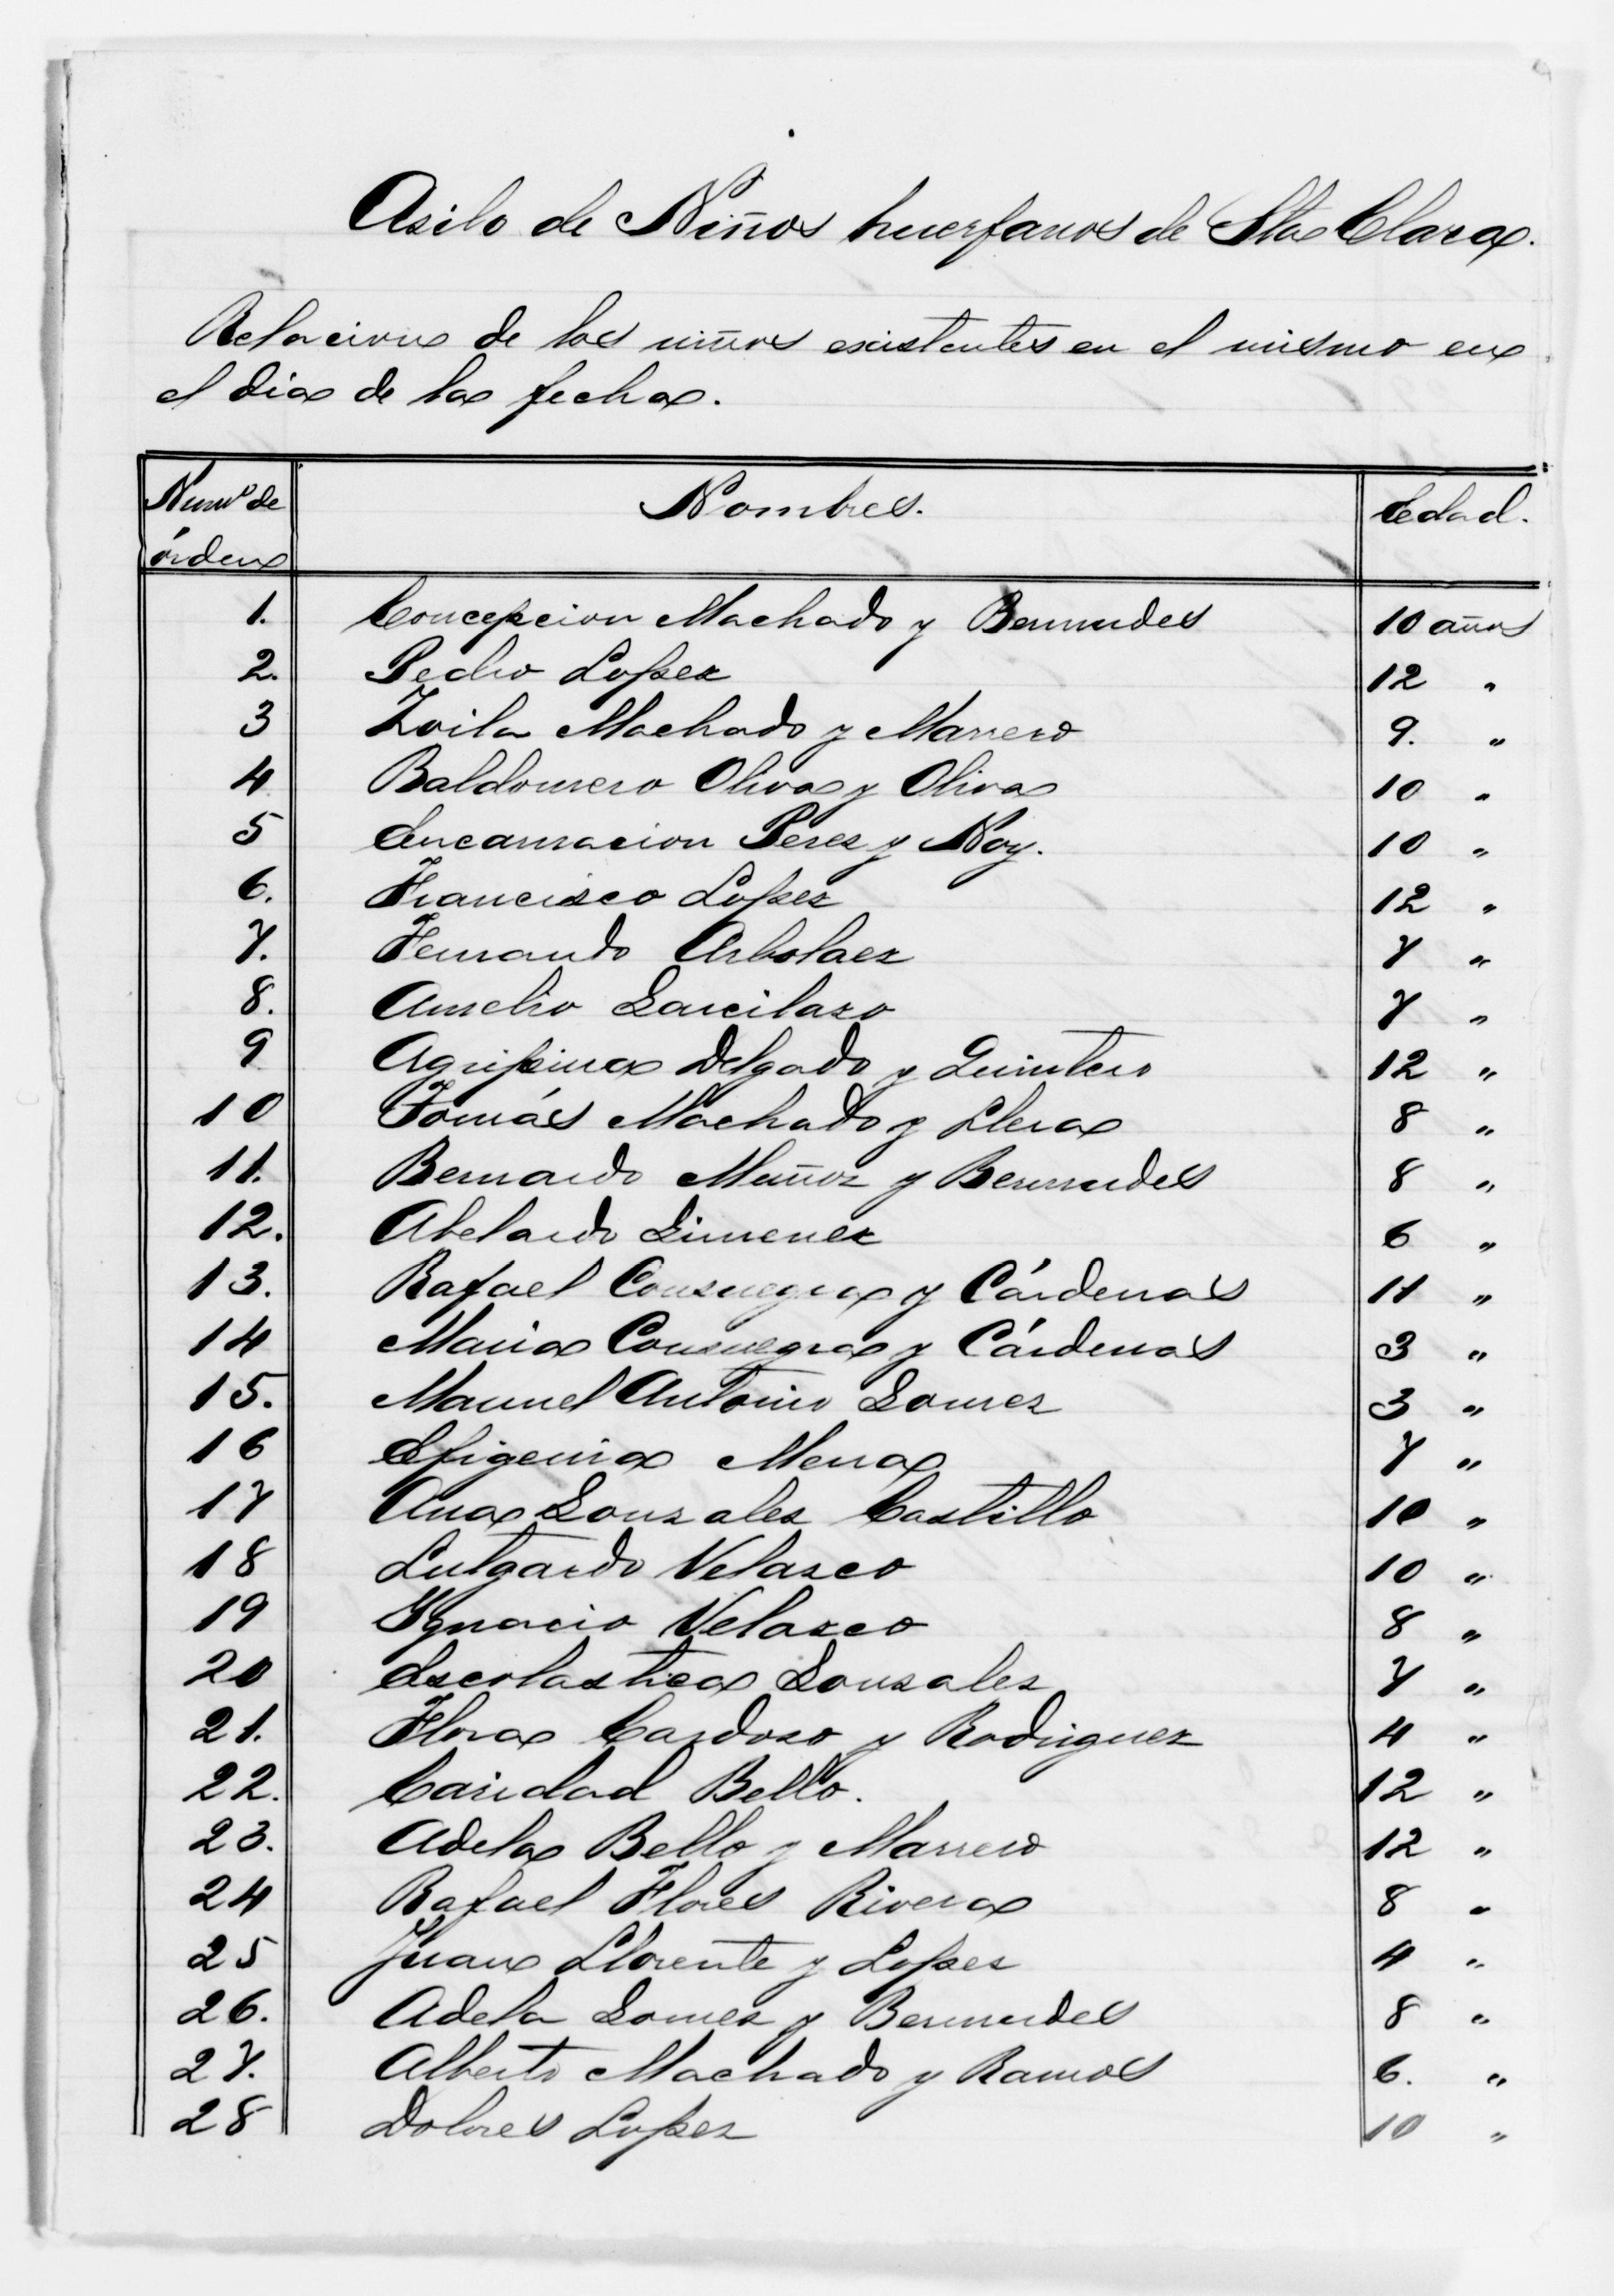 Asilo de Niños huerfanos de Sta Clara.
Relacion de los niños existentes en el mismo en
el dia de la fecha.
Numº de órden Nombres. Edad.
1. Concepcion Machado y Bermudes 10 años
2. Pedro Lopez 12 "
3 Zoila Machado y Marrero 9. "
4 Baldomero Oliva y Oliva 10 "
5 Encarnacion Perez y Noy. 10 "
6. Francisco Lopez 12 "
7. Fernando Arbolaez 7 "
8. Amelio Garcilazo 7 "
9 Agripina Delgado y Quintero 12 "
10 Tomás Machado y Llera 8 "
11. Bernardo Muñoz y Bermudes 8 "
12. Abelardo Gimenez 6 "
13. Rafael Consuegra y Cárdenas 11 "
14 Maria Consuegra y Cárdenas 3 "
15. Manuel Antonio Gomez 3 "
16 Efigenia Mena 7 "
17 Ana Gonzalez Castillo 10 "
18 Lutgardo Velazco 10 "
19 Ygnacio Velazco 8 "
20 Escolastica Gonzalez 7 "
21. Flora Cardoso y Rodriguez 4 "
22. Caridad Bello. 12 "
23. Adela Bello y Marrero 12 "
24 Rafael Flores Rivera 8 "
25 Juan Llorente y Lopez 4 "
26. Adela Gomez y Bermudes 8 "
27. Alberto Machado y Ramos 6. "
28 Dolores Lopez 10 "